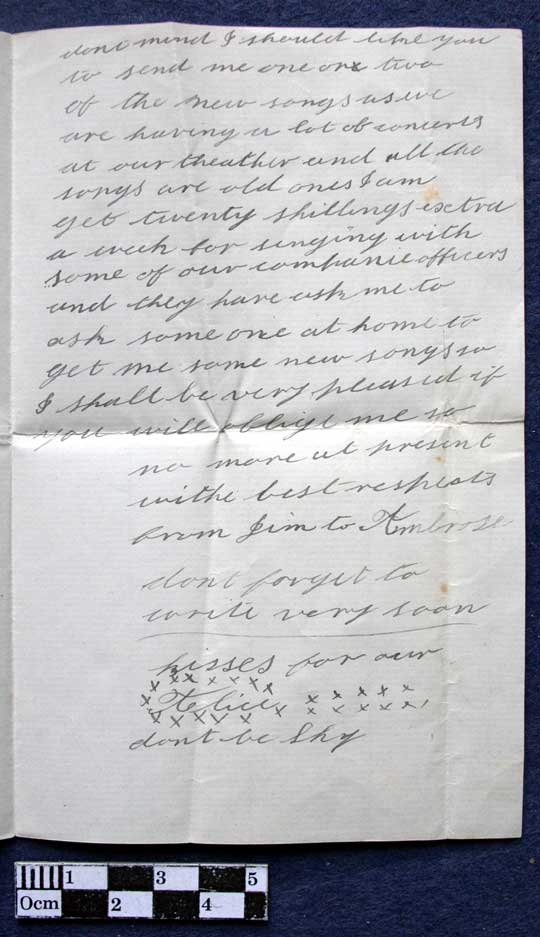 dont mind I should like you
to send me one or two
of the new songs as we
are having a lot of concerts
at our theather and all the
songs are old ones I am
get twenty shillings extra
a week for singing with
some of our companie officers
and they have ask me to
ask some one at home to
get me some new songs so
I shall be very pleased if
you will oblige me so
no more at present
withe best respects
from Jim to Ambrose
dont forget to
write very soon
kisses for our
x x x x x x x
x Alice x x x x x x
x x x x x x x x x x x
dont be Shy
1 3 5
0cm 2 4